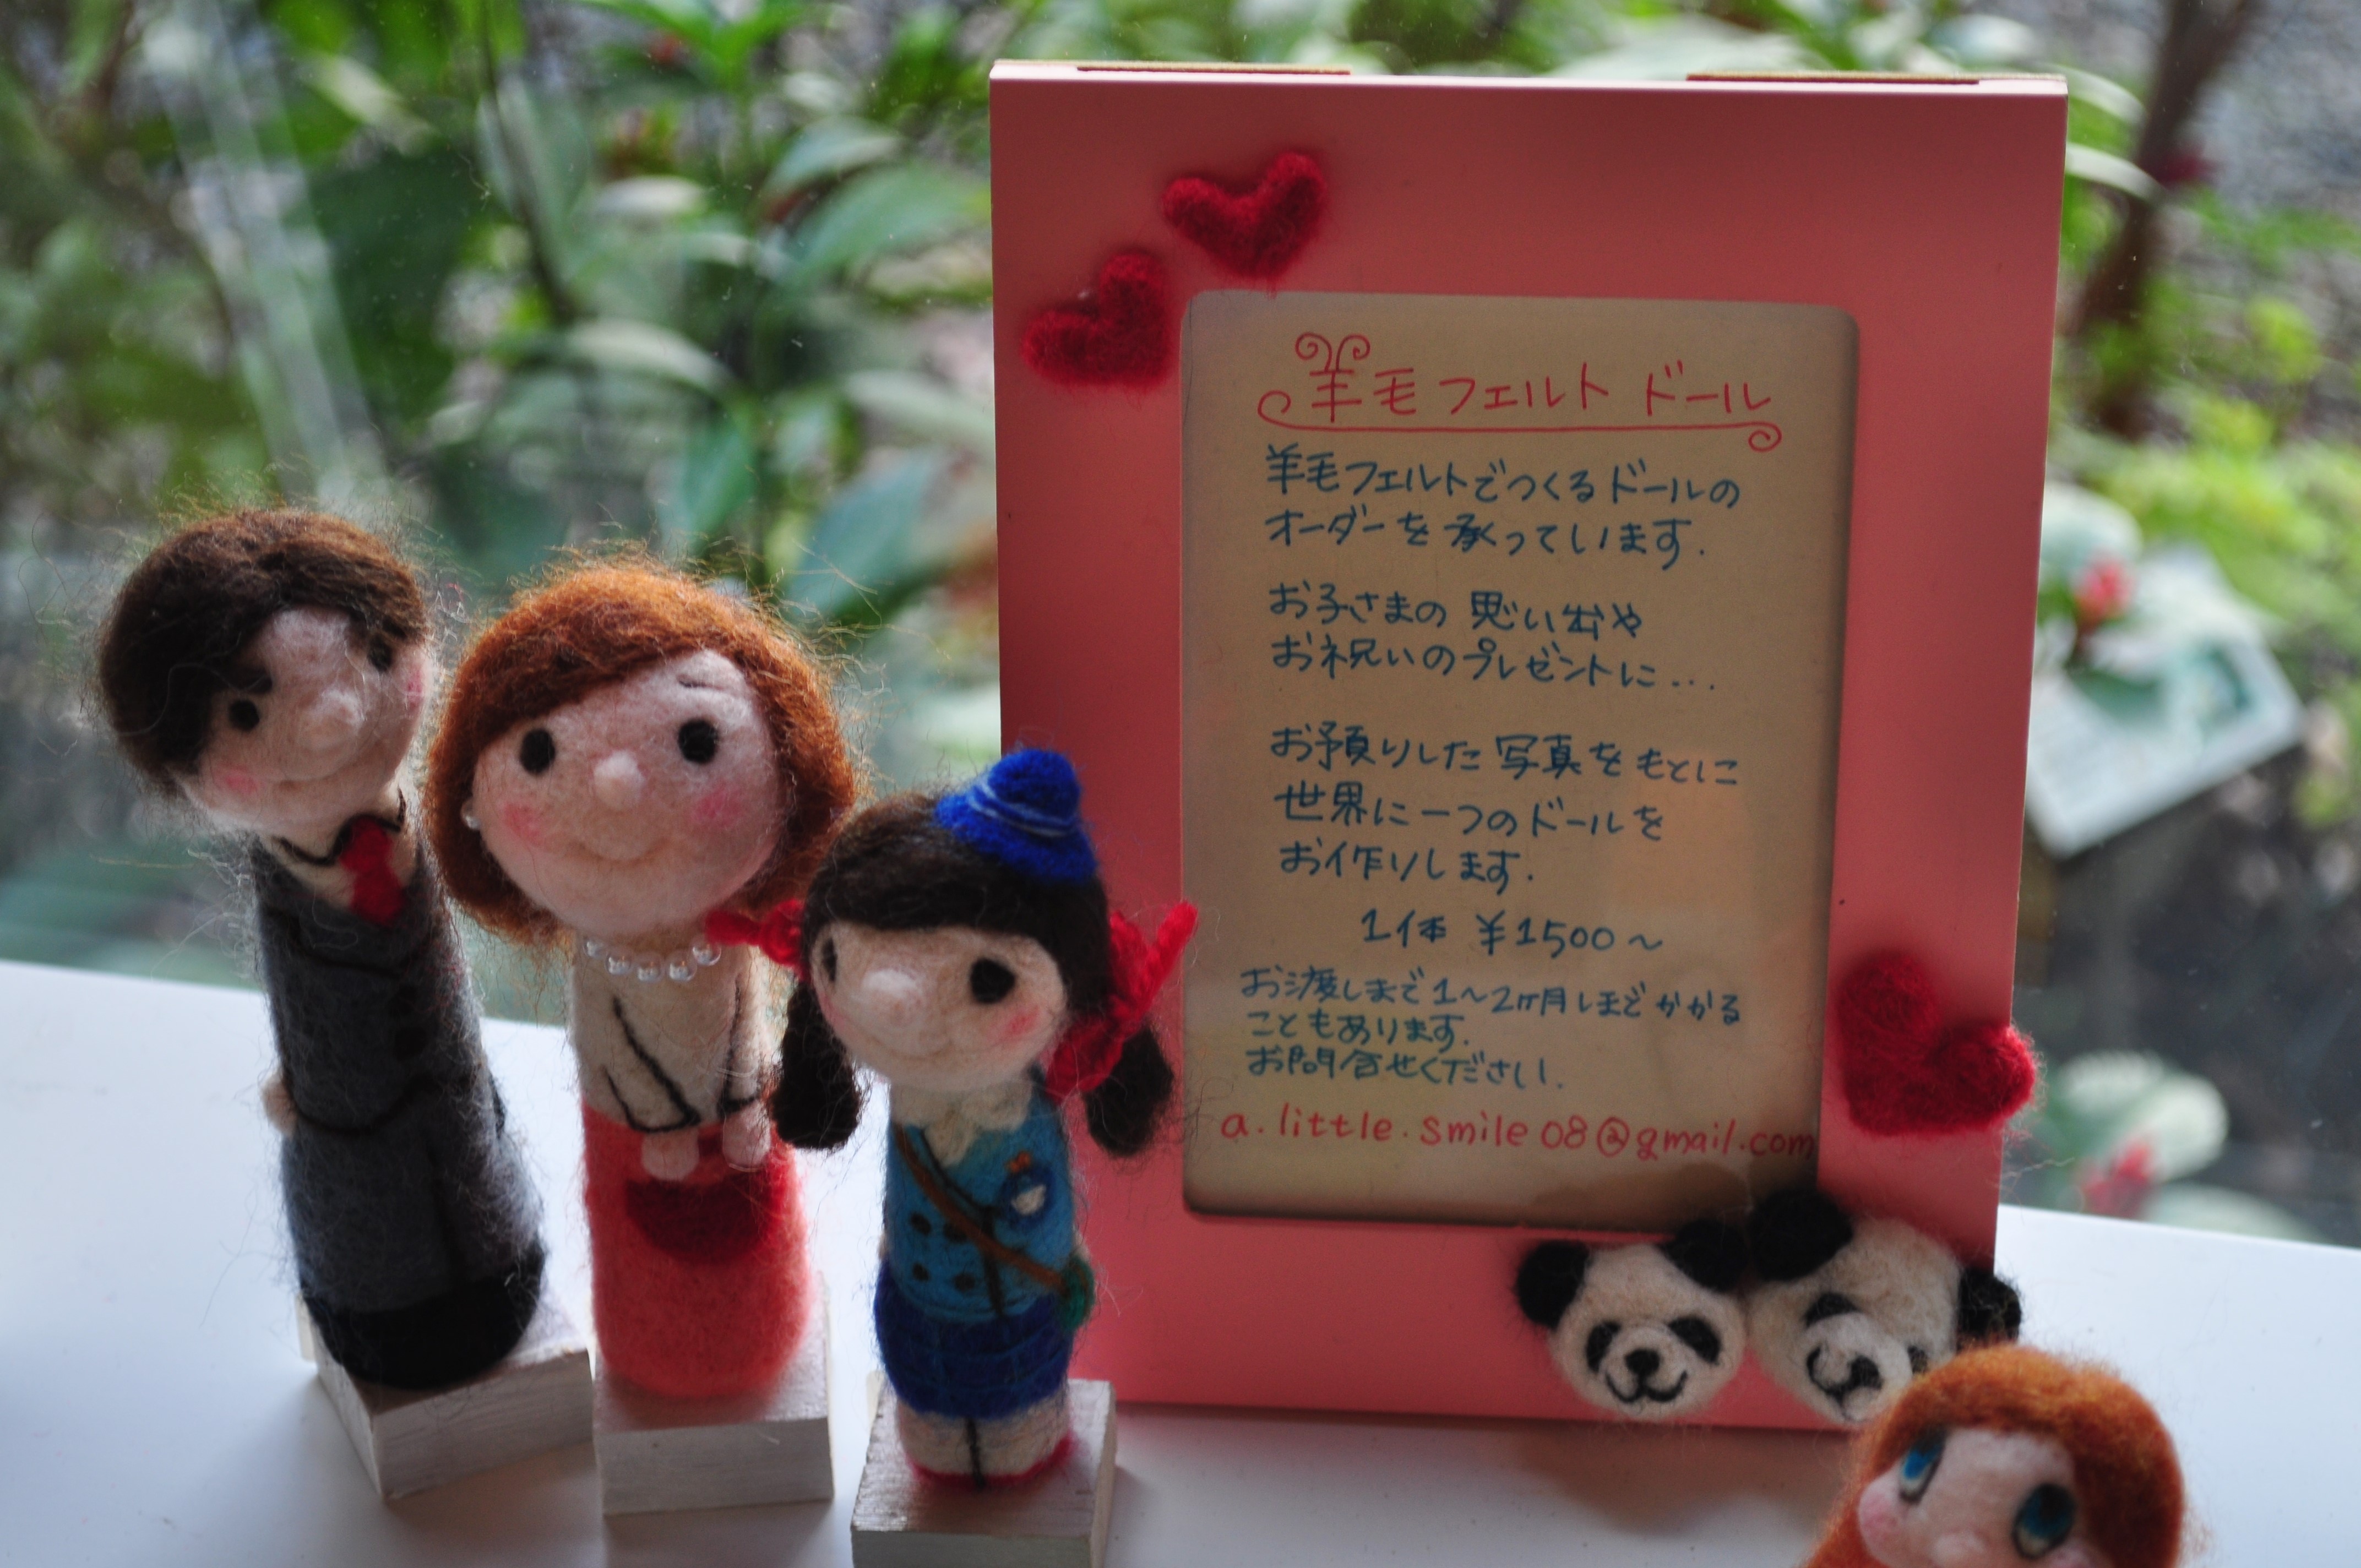 羊毛フェルト ドール
羊毛フェルトでつくるドールの
オーダーを承っています.
お子さまの思い出や
お祝いのプレゼントに...
お預りした写真をもとに
世界に一つのドールを
お作りします.
1体 ¥1500〜
お渡しまで1〜2ヶ月ほどかかる
こともあります.
お問合せください.
a.little.smile08@gmail.com